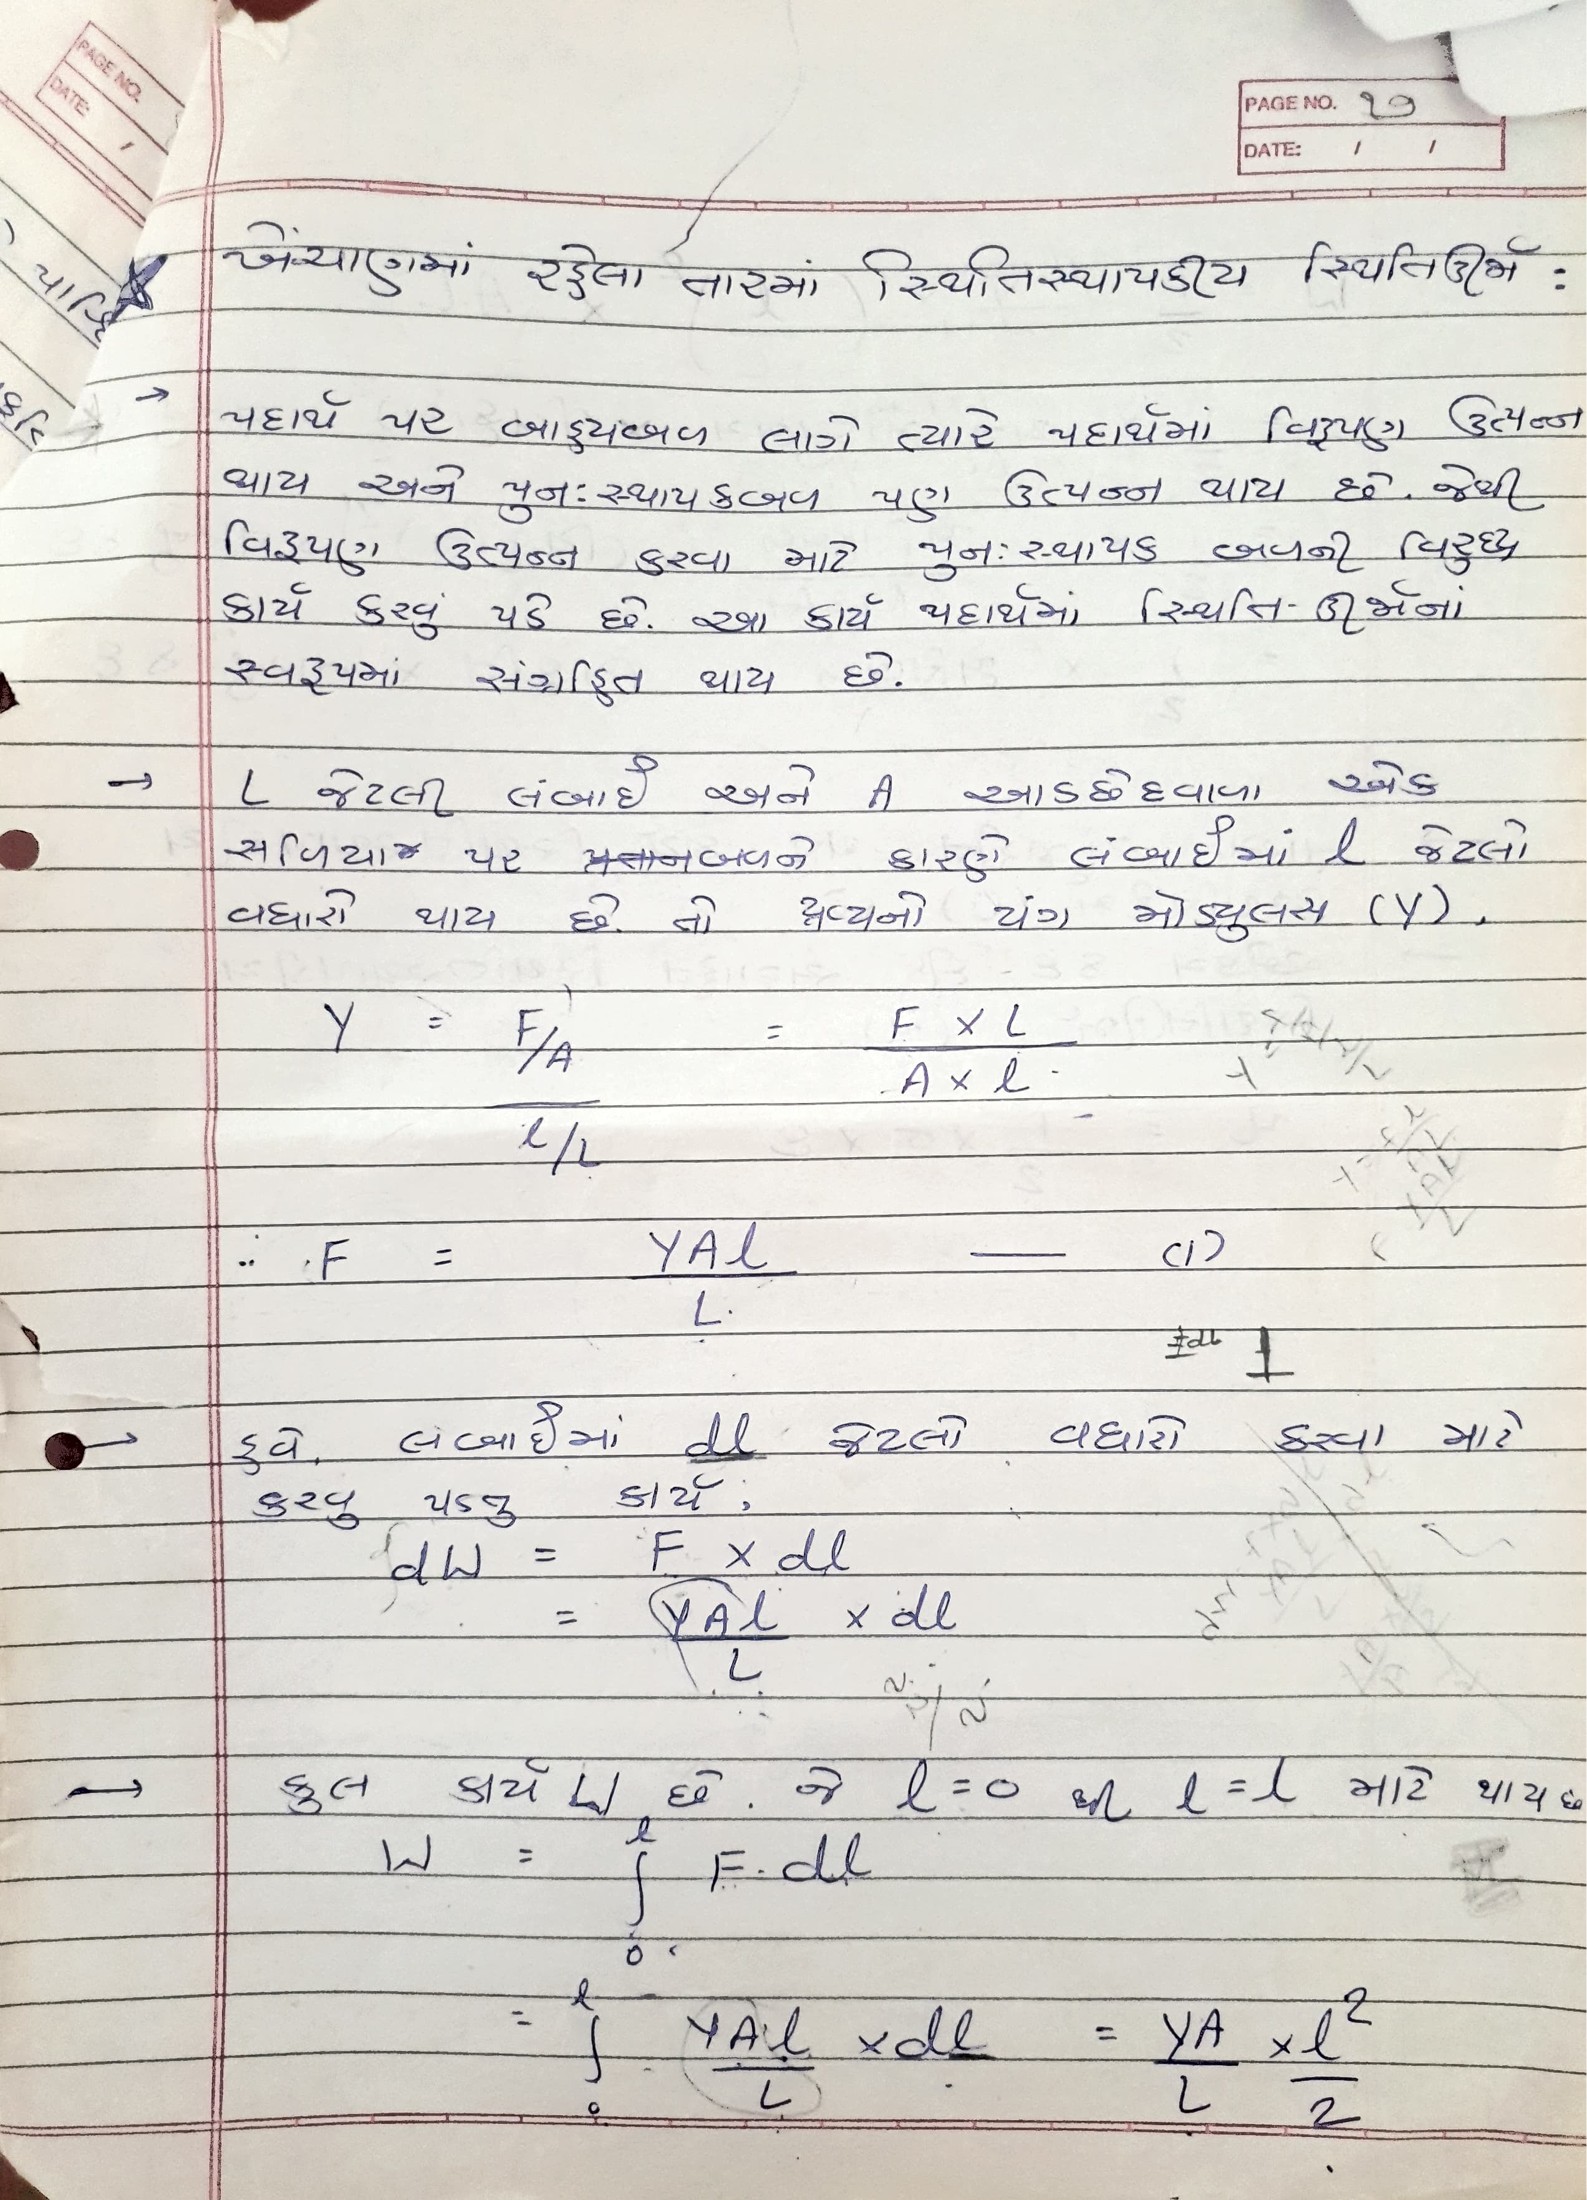 PAGE NO. ૨૭
DATE: / /
PAGE NO.
DATE: /
ખેંચાણમાં રહેલા તારમાં સ્થિતિસ્થાપકીય સ્થિતિઊર્જા :
→ પદાર્થ પર બાહ્યબળ લાગે ત્યારે પદાર્થમાં વિરૂપણ ઉત્પન્ન
થાય અને પુનઃસ્થાપકબળ પણ ઉત્પન્ન થાય છે. જેથી
વિરૂપણ ઉત્પન્ન કરવા માટે પુનઃસ્થાપક બળની વિરુધ્ધ
કાર્ય કરવું પડે છે. આ કાર્ય પદાર્થમાં સ્થિતિ-ઊર્જાનાં
સ્વરૂપમાં સંગ્રહિત થાય છે.
→ L જેટલી લંબાઈ અને A આડછેદવાળા એક
સળિયાજ પર પ્રતાનબળને કારણે લંબાઈમાં l જેટલો
વધારો થાય છે. તો દ્રવ્યનો યંગ મોડ્યુલસ (Y).
Y = F/A = F × L
A × l
l/L
∴ F = YAl — (1)
L
→ હવે, લંબાઈમાં dl જેટલો વધારો કરવા માટે
કરવુ પડતુ કાર્ય,
dW = F × dl
= YAl × dl
L
→ કુલ કાર્ય W છે. જે l=0 થી l=l માટે થાય છે
W = ∫ₒˡ F. dl
= ∫ₒˡ YAl × dl = YA × l²
L L 2